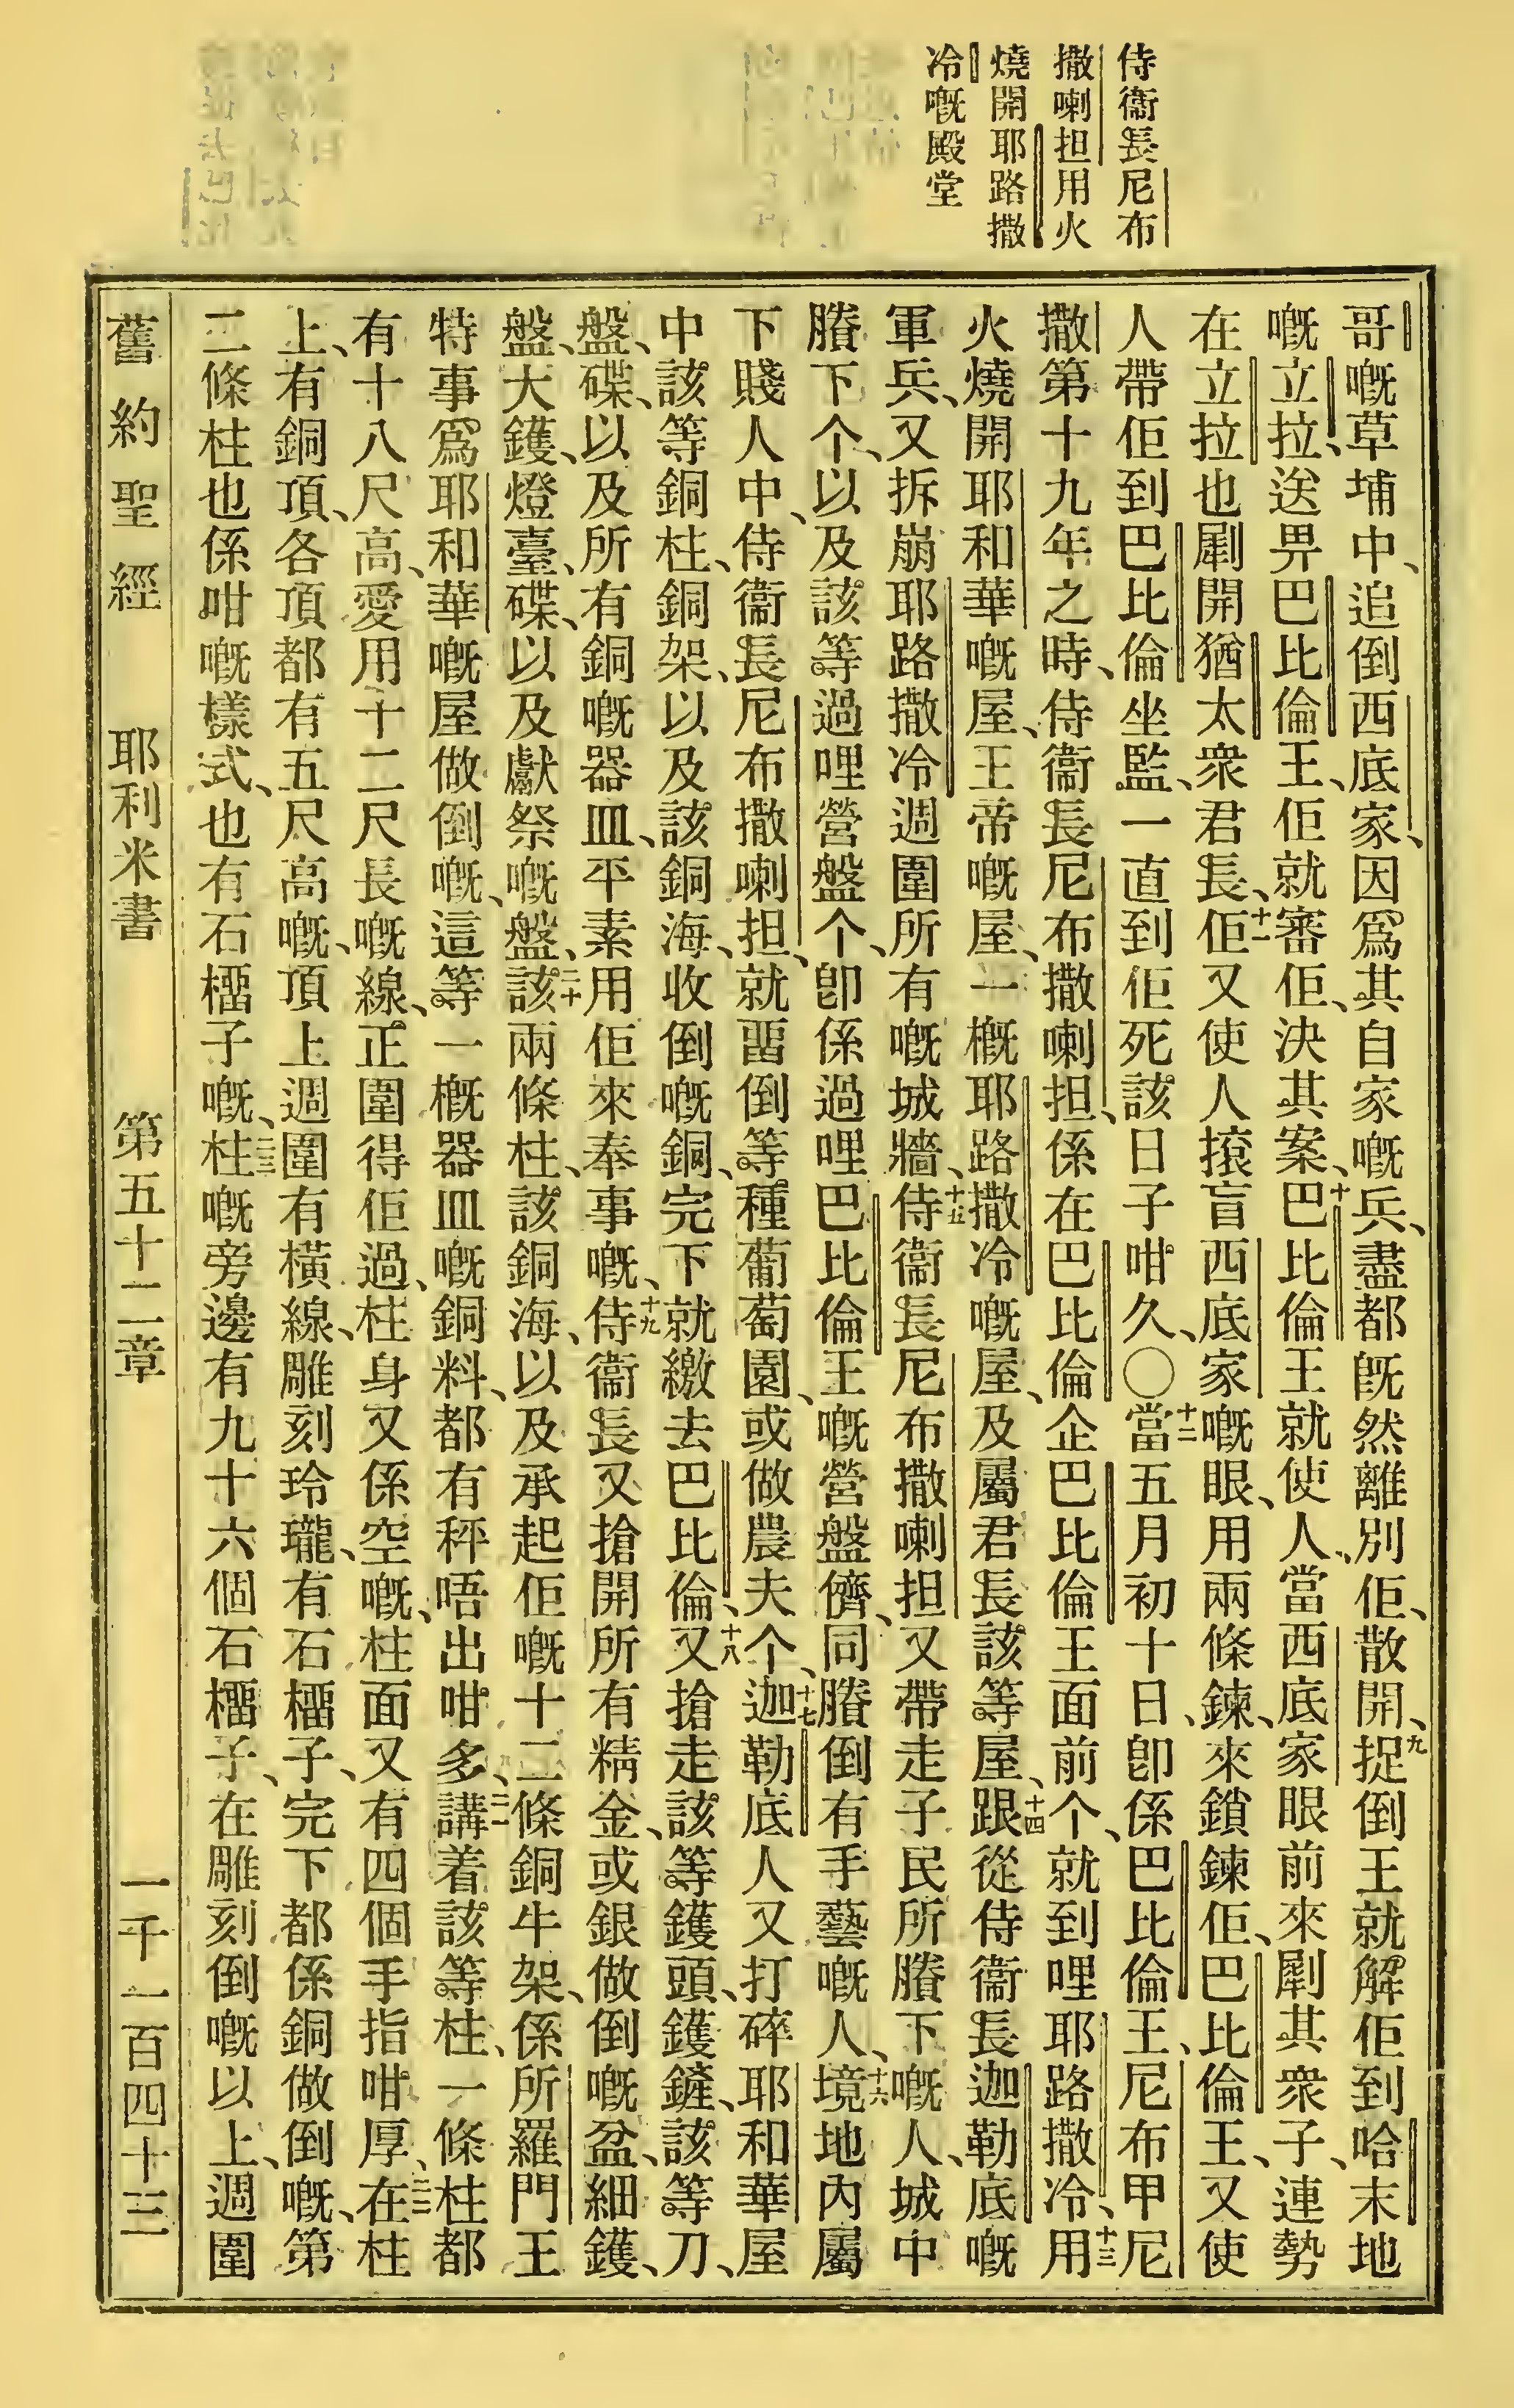 侍衞長尼布
撒喇担用火
燒開耶路撒
冷嘅殿堂
哥嘅草埔中、追倒西底家、因爲其自家嘅兵、盡都旣然離別佢、散開、九捉倒王就解佢到哈末地
嘅立拉、送畀巴比倫王、佢就審佢、決其案、十巴比倫王就使人、當西底家眼前來劚其衆子、連勢
在立拉也劚開猶太衆君長、十一佢又使人㨰盲西底家嘅眼、用兩條鍊、來鎖鍊佢、巴比倫王、又使
人帶佢到巴比倫坐監、一直到佢死該日子咁久、〇十二當五月初十日、卽係巴比倫王、尼布甲尼
撒第十九年之時、侍衞長尼布撒喇担、係在巴比倫企巴比倫王面前个、就到哩耶路撒冷、十三用
火燒開耶和華嘅屋、王帝嘅屋、一概耶路撒冷嘅屋、及屬君長該等屋、十四跟從侍衞長迦勒底嘅
軍兵、又拆崩耶路撒冷週圍所有嘅城牆、十五侍衞長尼布撒喇担又帶走子民所賸下嘅人、城中
賸下个、以及該等過哩營盤个、卽係過哩巴比倫王嘅營盤儕、同賸倒有手藝嘅人、十六境地內屬
下賤人中、侍衞長尼布撒喇担、就畱倒等種葡萄園、或做農夫个、十七迦勒底人又打碎耶和華屋
中該等銅柱、銅架、以及該銅海、收倒嘅銅、完下就繳去巴比倫、十八又搶走該等鑊頭、鑊鏟、該等刀、
盤、碟、以及所有銅嘅器皿、平素用佢來奉事嘅、十九侍衞長又搶開所有精金、或銀做倒嘅盆、細鑊、
盤、大鑊、燈臺、碟、以及獻祭嘅盤、二十該兩條柱、該銅海、以及承起佢嘅十二條銅牛架、係所羅門王
特事爲耶和華嘅屋做倒嘅、這等一概器皿嘅銅料、都有秤唔出咁多、二一講着該等柱、一條柱都
有十八尺高、愛用十二尺長嘅線、正圍得佢過、柱身又係空嘅、柱面又有四個手指咁厚、二二在柱
上、有銅頂、各頂都有五尺高嘅、頂上週圍有橫線、雕刻玲瓏、有石橊子、完下都係銅做倒嘅、第
二條柱也係咁嘅樣式、也有石橊子嘅、二三柱嘅旁邊有九十六個石橊子、在雕刻倒嘅以上、週圍
舊約聖經 耶利米書 第五十二章 一千一百四十三